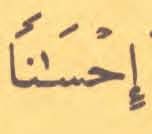 إِحْسَٰنًا